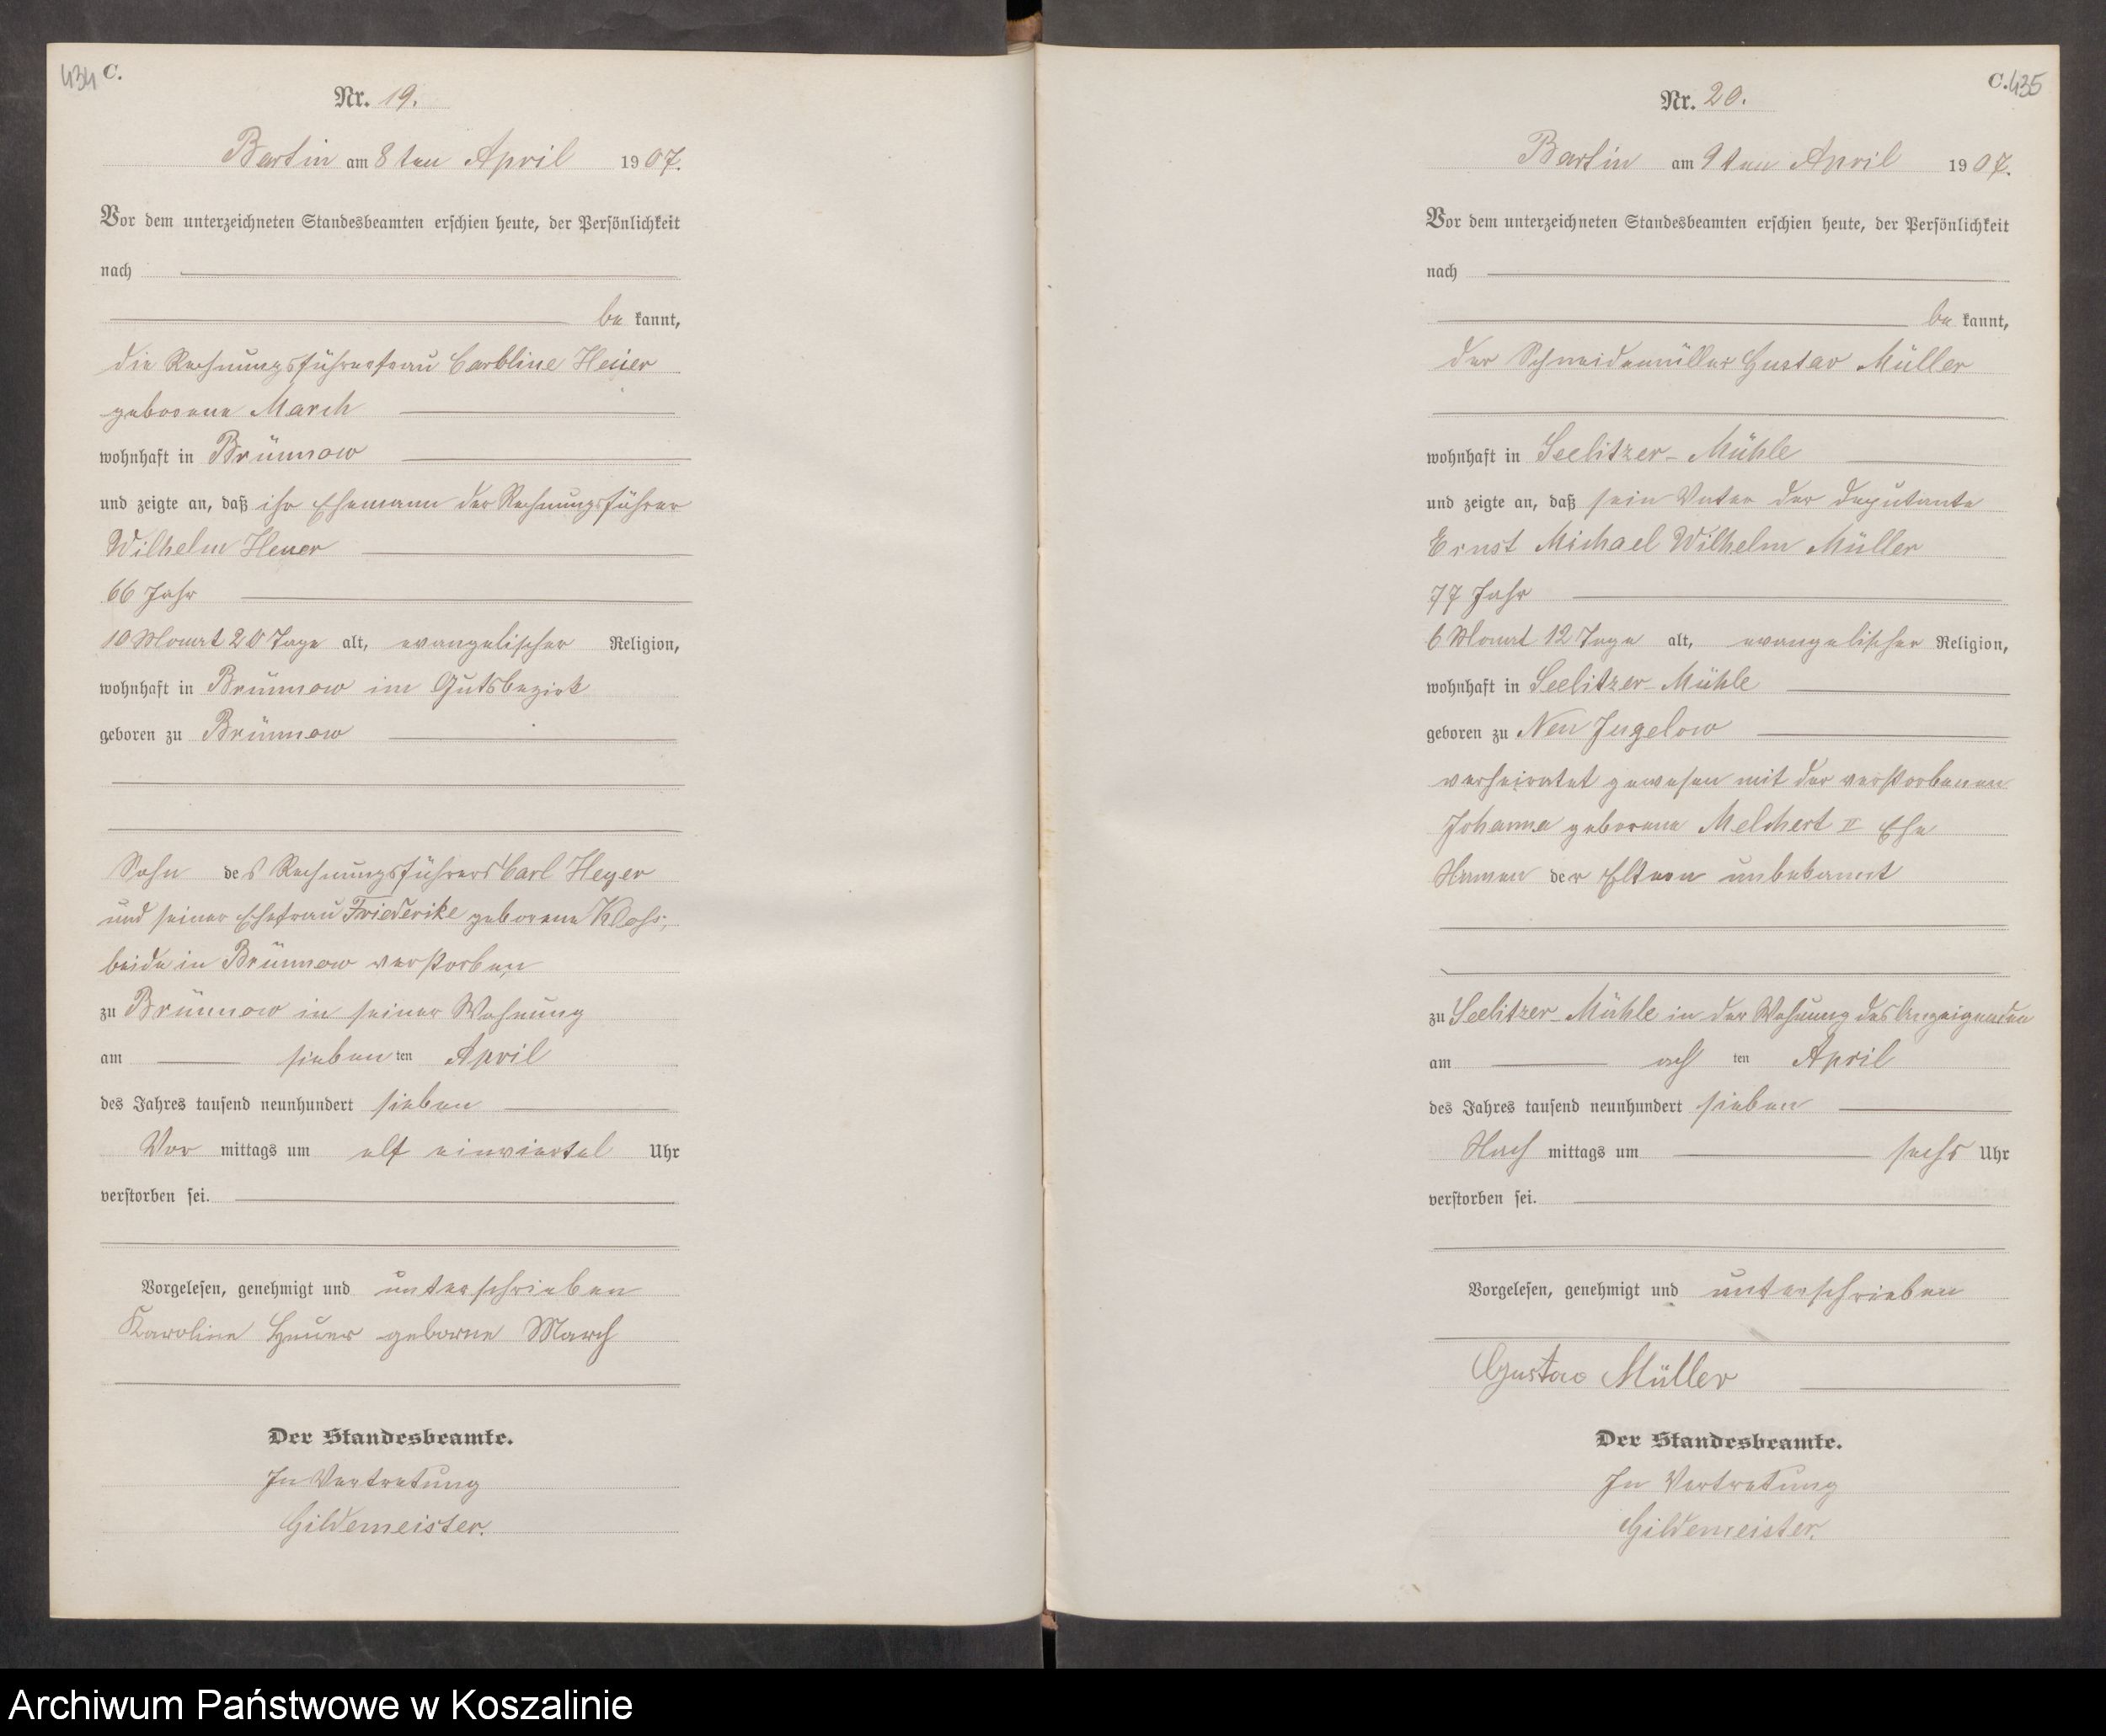 434 C.
Nr. 19.
Bartin am 8ten April 1907.
Vor dem unterzeichneten Standesbeamten erschien heute, der Persönlichkeit
nach
be kannt,
die Rechnungsführerfrau Caroline Heuer
geborene March
wohnhaft in Brünnow
und zeigte an, daß ihr Ehemann der Rechnungsführer
Wilhelm Heuer
66 Jahr
10 Monat 20 Tage alt, evangelischer Religion,
wohnhaft in Brünnow im Gutsbezirk
geboren zu Brünnow
Sohn des Rechnungsführers Carl Heyer
und seiner Ehefrau Friederike geborene
beide in Brünnow verstorben
zu Brünnow in seiner Wohnung
am sieben ten April
des Jahres tausend neunhundert sieben
Vor mittags um elf einviertel Uhr
verstorben sei.
Vorgelesen, genehmigt und unterschrieben
Karoline Heuer geborne March
Der Standesbeamte.
In Vertretung
Gildemeister.
C. 435
Nr. 20.
Bartin am 9ten April 1907.
Vor dem unterzeichneten Standesbeamten erschien heute, der Persönlichkeit
nach
be kannt,
der Schneidemüller Gustav Müller
wohnhaft in Seelitzer-Mühle
und zeigte an, daß sein Vater der Deputante
Ernst Michael Wilhelm Müller
77 Jahr
6 Monat 12 Tage alt, evangelischer Religion,
wohnhaft in Seelitzer-Mühle
geboren zu Neu Jugelow
verheiratet gewesen mit der verstorbenen
Johanna geborene Melchert II Ehe
Namen der Eltern unbekannt
zu Seelitzer-Mühle in der Wohnung des Anzeigenden
am ach ten April
des Jahres tausend neunhundert sieben
Nach mittags um sechs Uhr
verstorben sei.
Vorgelesen, genehmigt und unterschrieben
Gustav Müller
Der Standesbeamte.
In Vertretung
Gildemeister.
Archiwum Państwowe w Koszalinie